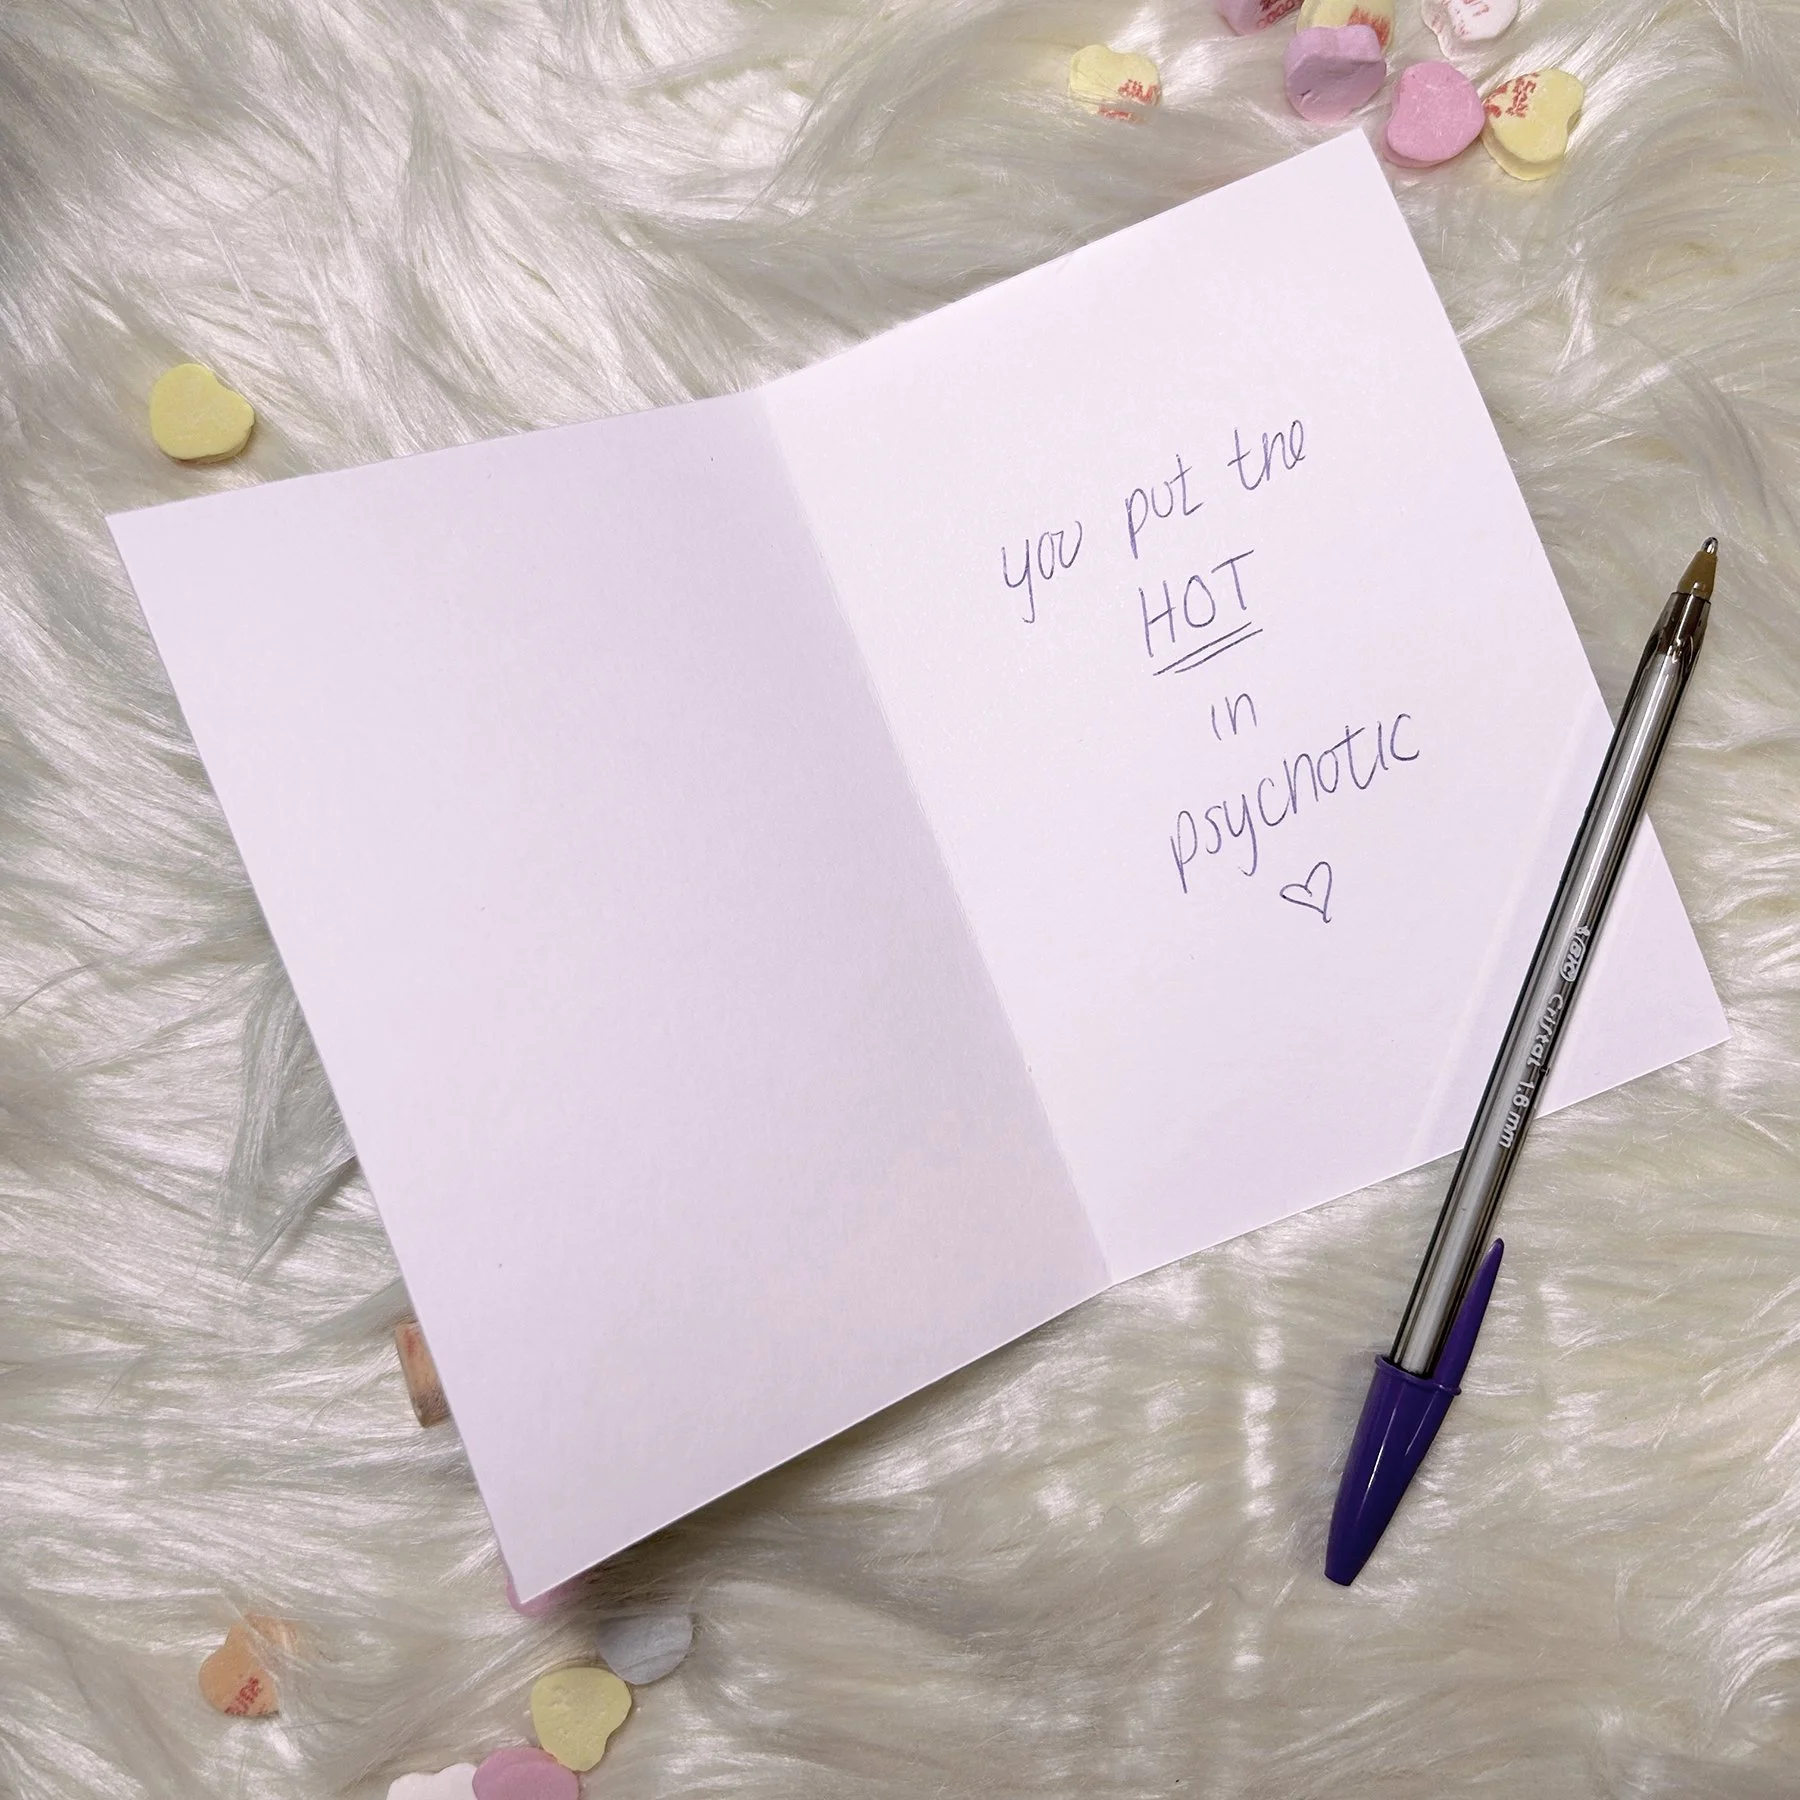 you put the
HOT
in
psychotic
BIC Cristal 1.6 mm